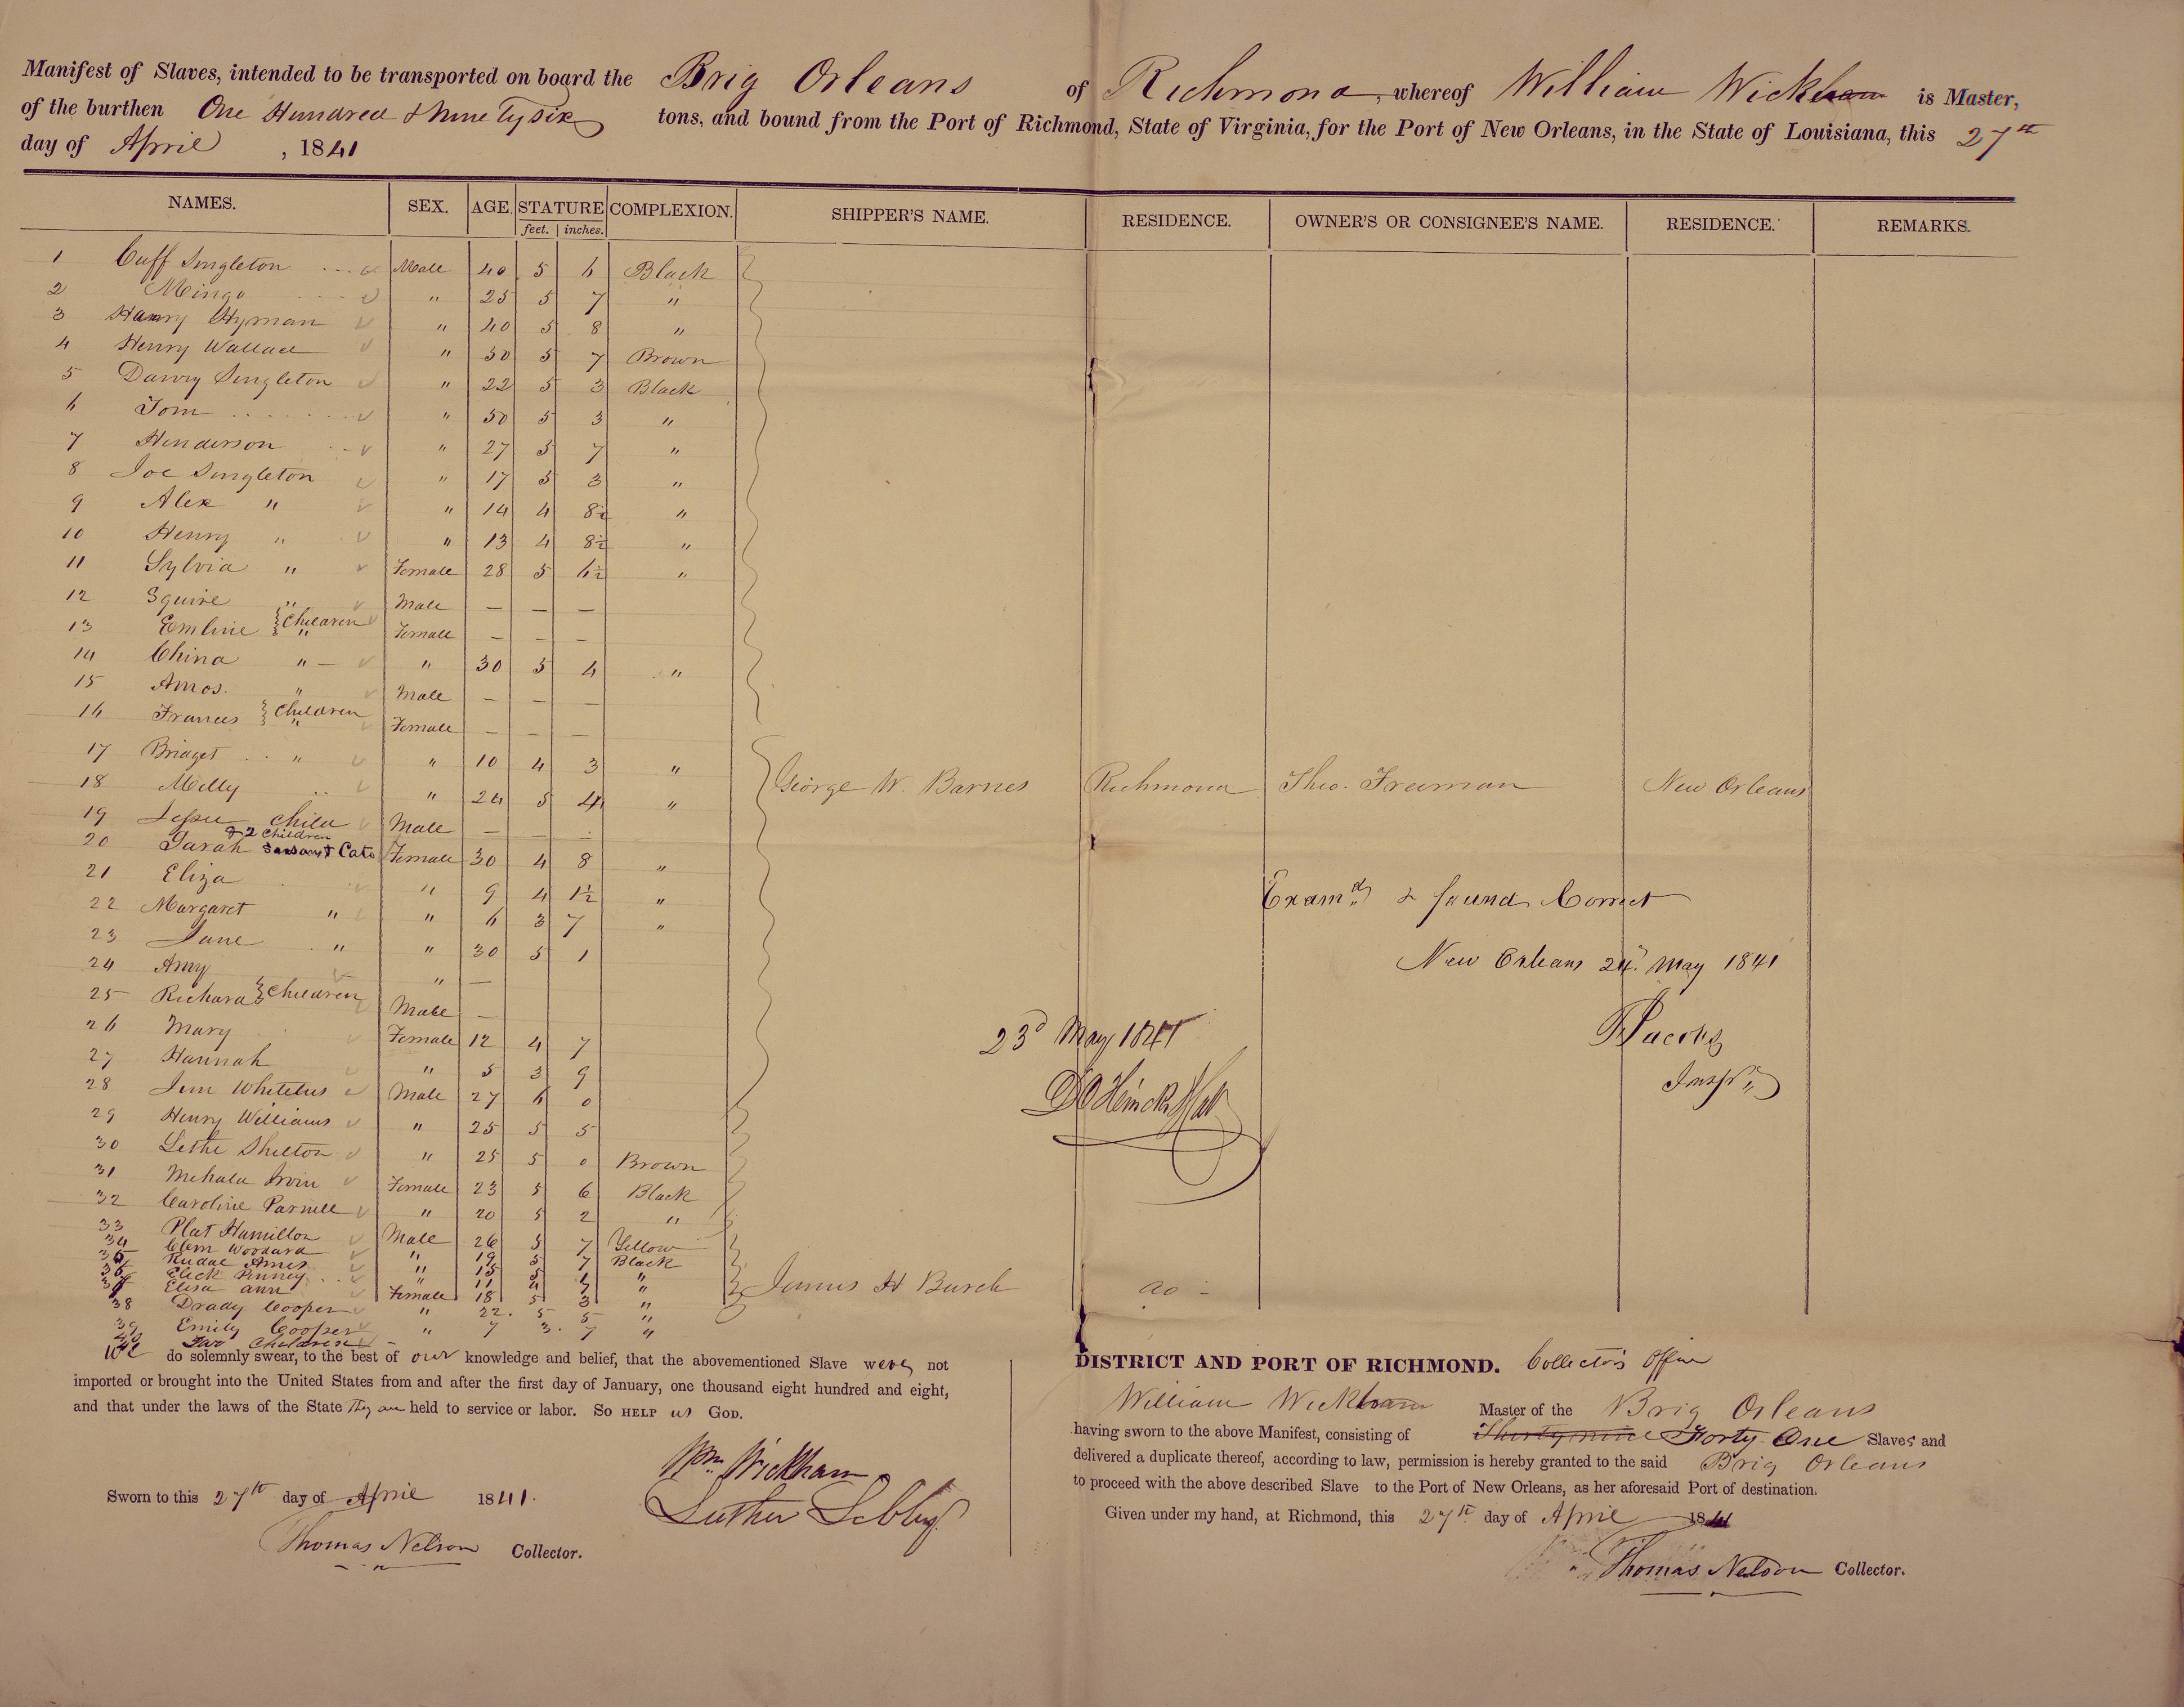 Manifest of Slaves, intended to be transported on board the Brig Orleans of Richmond, whereof William Wickham is Master,
of the burthen One Hundred & Ninety six tons, and bound from the Port of Richmond, State of Virginia, for the Port of New Orleans, in the State of Louisiana, this 27th
day of April, 1841
NAMES. SEX. AGE. STATURE COMPLEXION. SHIPPER'S NAME. RESIDENCE. OWNER'S OR CONSIGNEE'S NAME. RESIDENCE. REMARKS.
feet. inches.
1 Cuff Singleton Male 40 5 6 Black
2 Mingo " 25 5 7 "
3 Henry Hyman " 40 5 8 "
4 Henry Wallace " 50 5 7 Brown
5 Danry Singleton " 22 5 3 Black
6 Tom " 50 5 3 "
7 Henderson " 27 5 7 "
8 Joe Singleton " 17 5 3 "
9 Alex " " 14 4 8½ "
10 Henry " " 13 4 8½ "
11 Sylvia " Female 28 5 6½ "
12 Squire " Male — — —
13 Emline } Children " Female — — —
14 China " — " 30 5 4 "
15 Amos. " Male — — —
16 Frances } Children " Female — — —
17 Bridget " " 10 4 3 "
18 Milly " 24 5 4 " George W. Barnes Richmond Theo. Freeman New Orleans
19 Jessee Child Male — — —
& 2 Children
20 Sarah Cato Female 30 4 8 "
21 Eliza " 9 4 1½ "
22 Margaret " " 6 3 7 "
23 Jane " " 30 5 1
24 Amy " —
25 Richard } Children Male —
26 Mary Female 12 4 7
27 Hannah " 5 3 9
28 Jim Whitelus Male 27 6 0
29 Henry Williams " 25 5 5
30 Lethe Shelton " 25 5 0 Brown
31 Mehala Irvin Female 23 5 6 Black
32 Caroline Parnell " 20 5 2 "
33 Plat Hamilton Male 26 5 7 Yellow
34 Clem Woodard " 19 5 7 Black
35 Ames " 15 5 1 "
36 Elick Pinney " 11 4 7 "
37 Elisa Ann Female 18 5 3 " James H Burch do -
38 Drady Cooper " 22. 5 5 "
39 Emily Cooper " 7 3. 7 "
Two Children
Examd & found Correct
New Orleans 24. May 1841
Jacobs
Inspr
23d May 1841
We do solemnly swear, to the best of our knowledge and belief, that the abovementioned Slave were not
imported or brought into the United States from and after the first day of January, one thousand eight hundred and eight,
and that under the laws of the State they are held to service or labor. So HELP us GOD.
Wm Wickham
Luther Libby
Sworn to this 27th day of April 1841.
Thomas Nelson Collector.
DISTRICT AND PORT OF RICHMOND. Collector's Office
William Wickham Master of the Brig Orleans
having sworn to the above Manifest, consisting of Thirty nine Forty One Slaves and
delivered a duplicate thereof, according to law, permission is hereby granted to the said Brig Orleans
to proceed with the above described Slave to the Port of New Orleans, as her aforesaid Port of destination.
Given under my hand, at Richmond, this 27th day of April 1841
Thomas Nelson Collector.